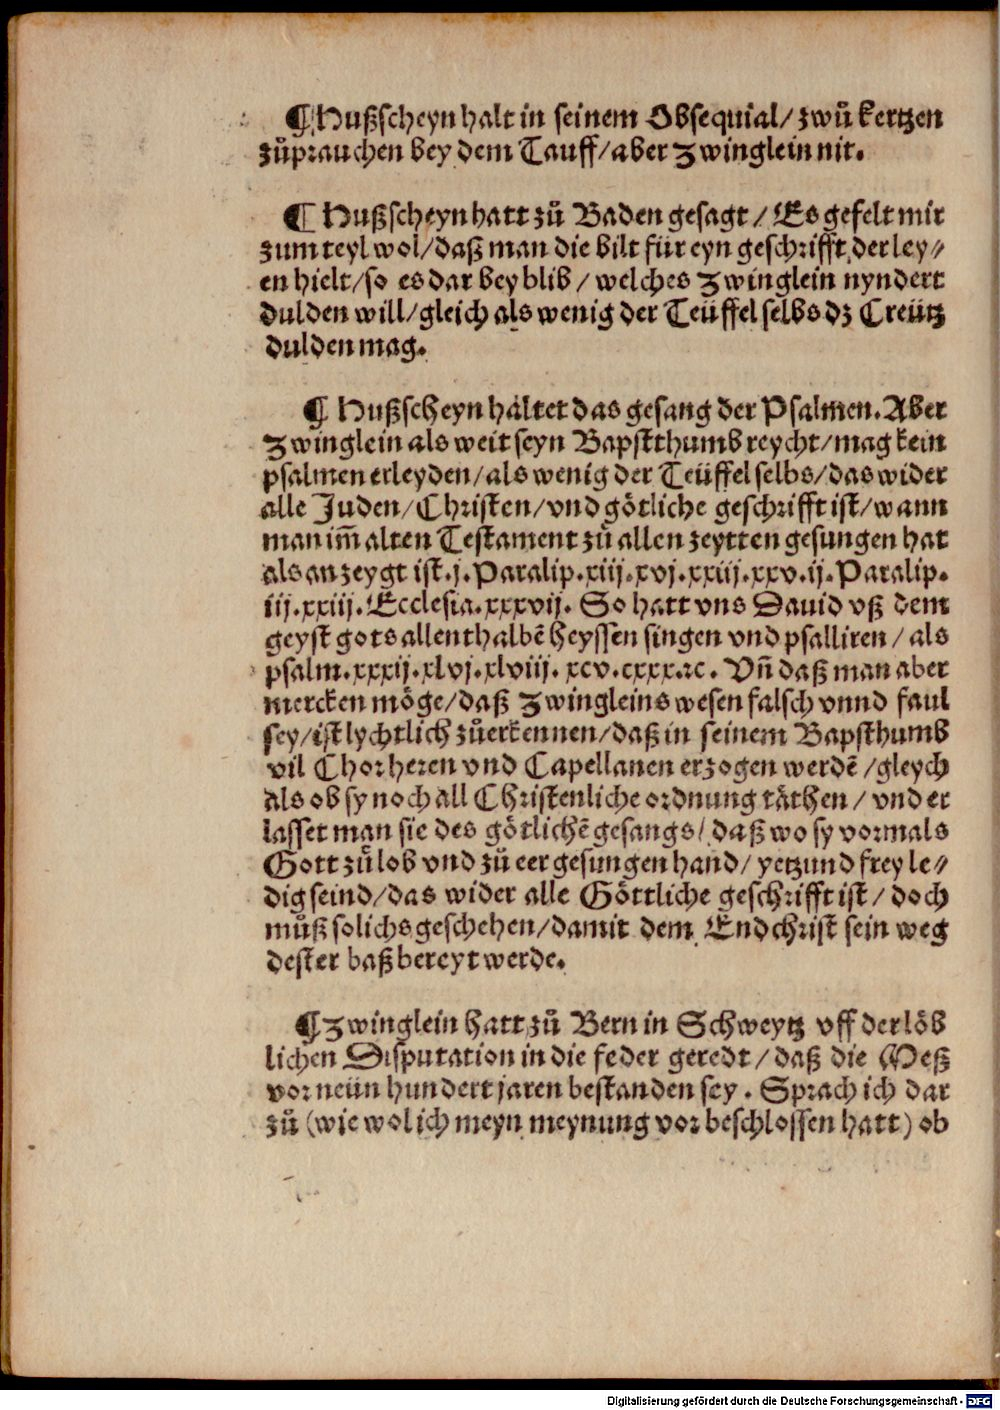 ¶ Hußscheyn halt in seinem Obsequial/ zwů kertzen
zůprauchen bey dem Tauff/ aber Zwinglein nit.
¶ Hußscheyn hatt zů Baden gesagt / Es gefelt mir
zum teyl wol/ daß man die bilt für eyn geschrifft der ley⸗
en hielt/ so es dar bey blib / welches Zwinglein nyndert
dulden will/ gleich als wenig der Teüffel selbs dz Creütz
dulden mag.
¶ Hußscheyn haltet das gesang der Psalmen. Aber
Zwinglein als weit seyn Bapstthumb reycht/ mag kein
psalmen erleyden/ als wenig der Teüffel selbs/ das wider
alle Juden/ Christen/ vnd götliche geschrifft ist/ wann
man im̄ alten Testament zů allen zeytten gesungen hat
als anzeygt ist .j. Paralip. xiij. xvj. xxiij. xxv. ij. Paralip.
iij. xxiij. Ecclesia. xxxvij. So hatt vns Dauid vß dem
geyst gots allenthalbē heyssen singen vnd psalliren / als
psalm. xxxij. xlvj. xlviij. xcv. cxxx. ꝛc. Vn̄ daß man aber
mercken möge/ daß Zwingleins wesen falsch vnnd faul
sey/ ist lychtlich zůerkennen/ daß in seinem Bapsthumb
vil Chorheren vnd Capellanen erzogen werdē / gleych
als ob sy noch all Christenliche ordnung täthen / vnd er
lasset man sie des götlichē gesangs/ daß wo sy vormals
Gott zů lob vnd zů eer gesungen hand/ yetzund frey le⸗
dig seind/ das wider alle Göttliche geschrifft ist / doch
můß solichs geschehen/ damit dem Endchrist sein weg
dester baß bereyt werde.
¶ Zwinglein hatt zů Bern in Schweytz vff der löb
lichen Disputation in die feder geredt / daß die Meß
vor neün hundert jaren bestanden sey . Sprach ich dar
zů (wie wol ich meyn meynung vor beschlossen hatt) ob
Digitalisierung gefördert durch die Deutsche Forschungsgemeinschaft - DFG